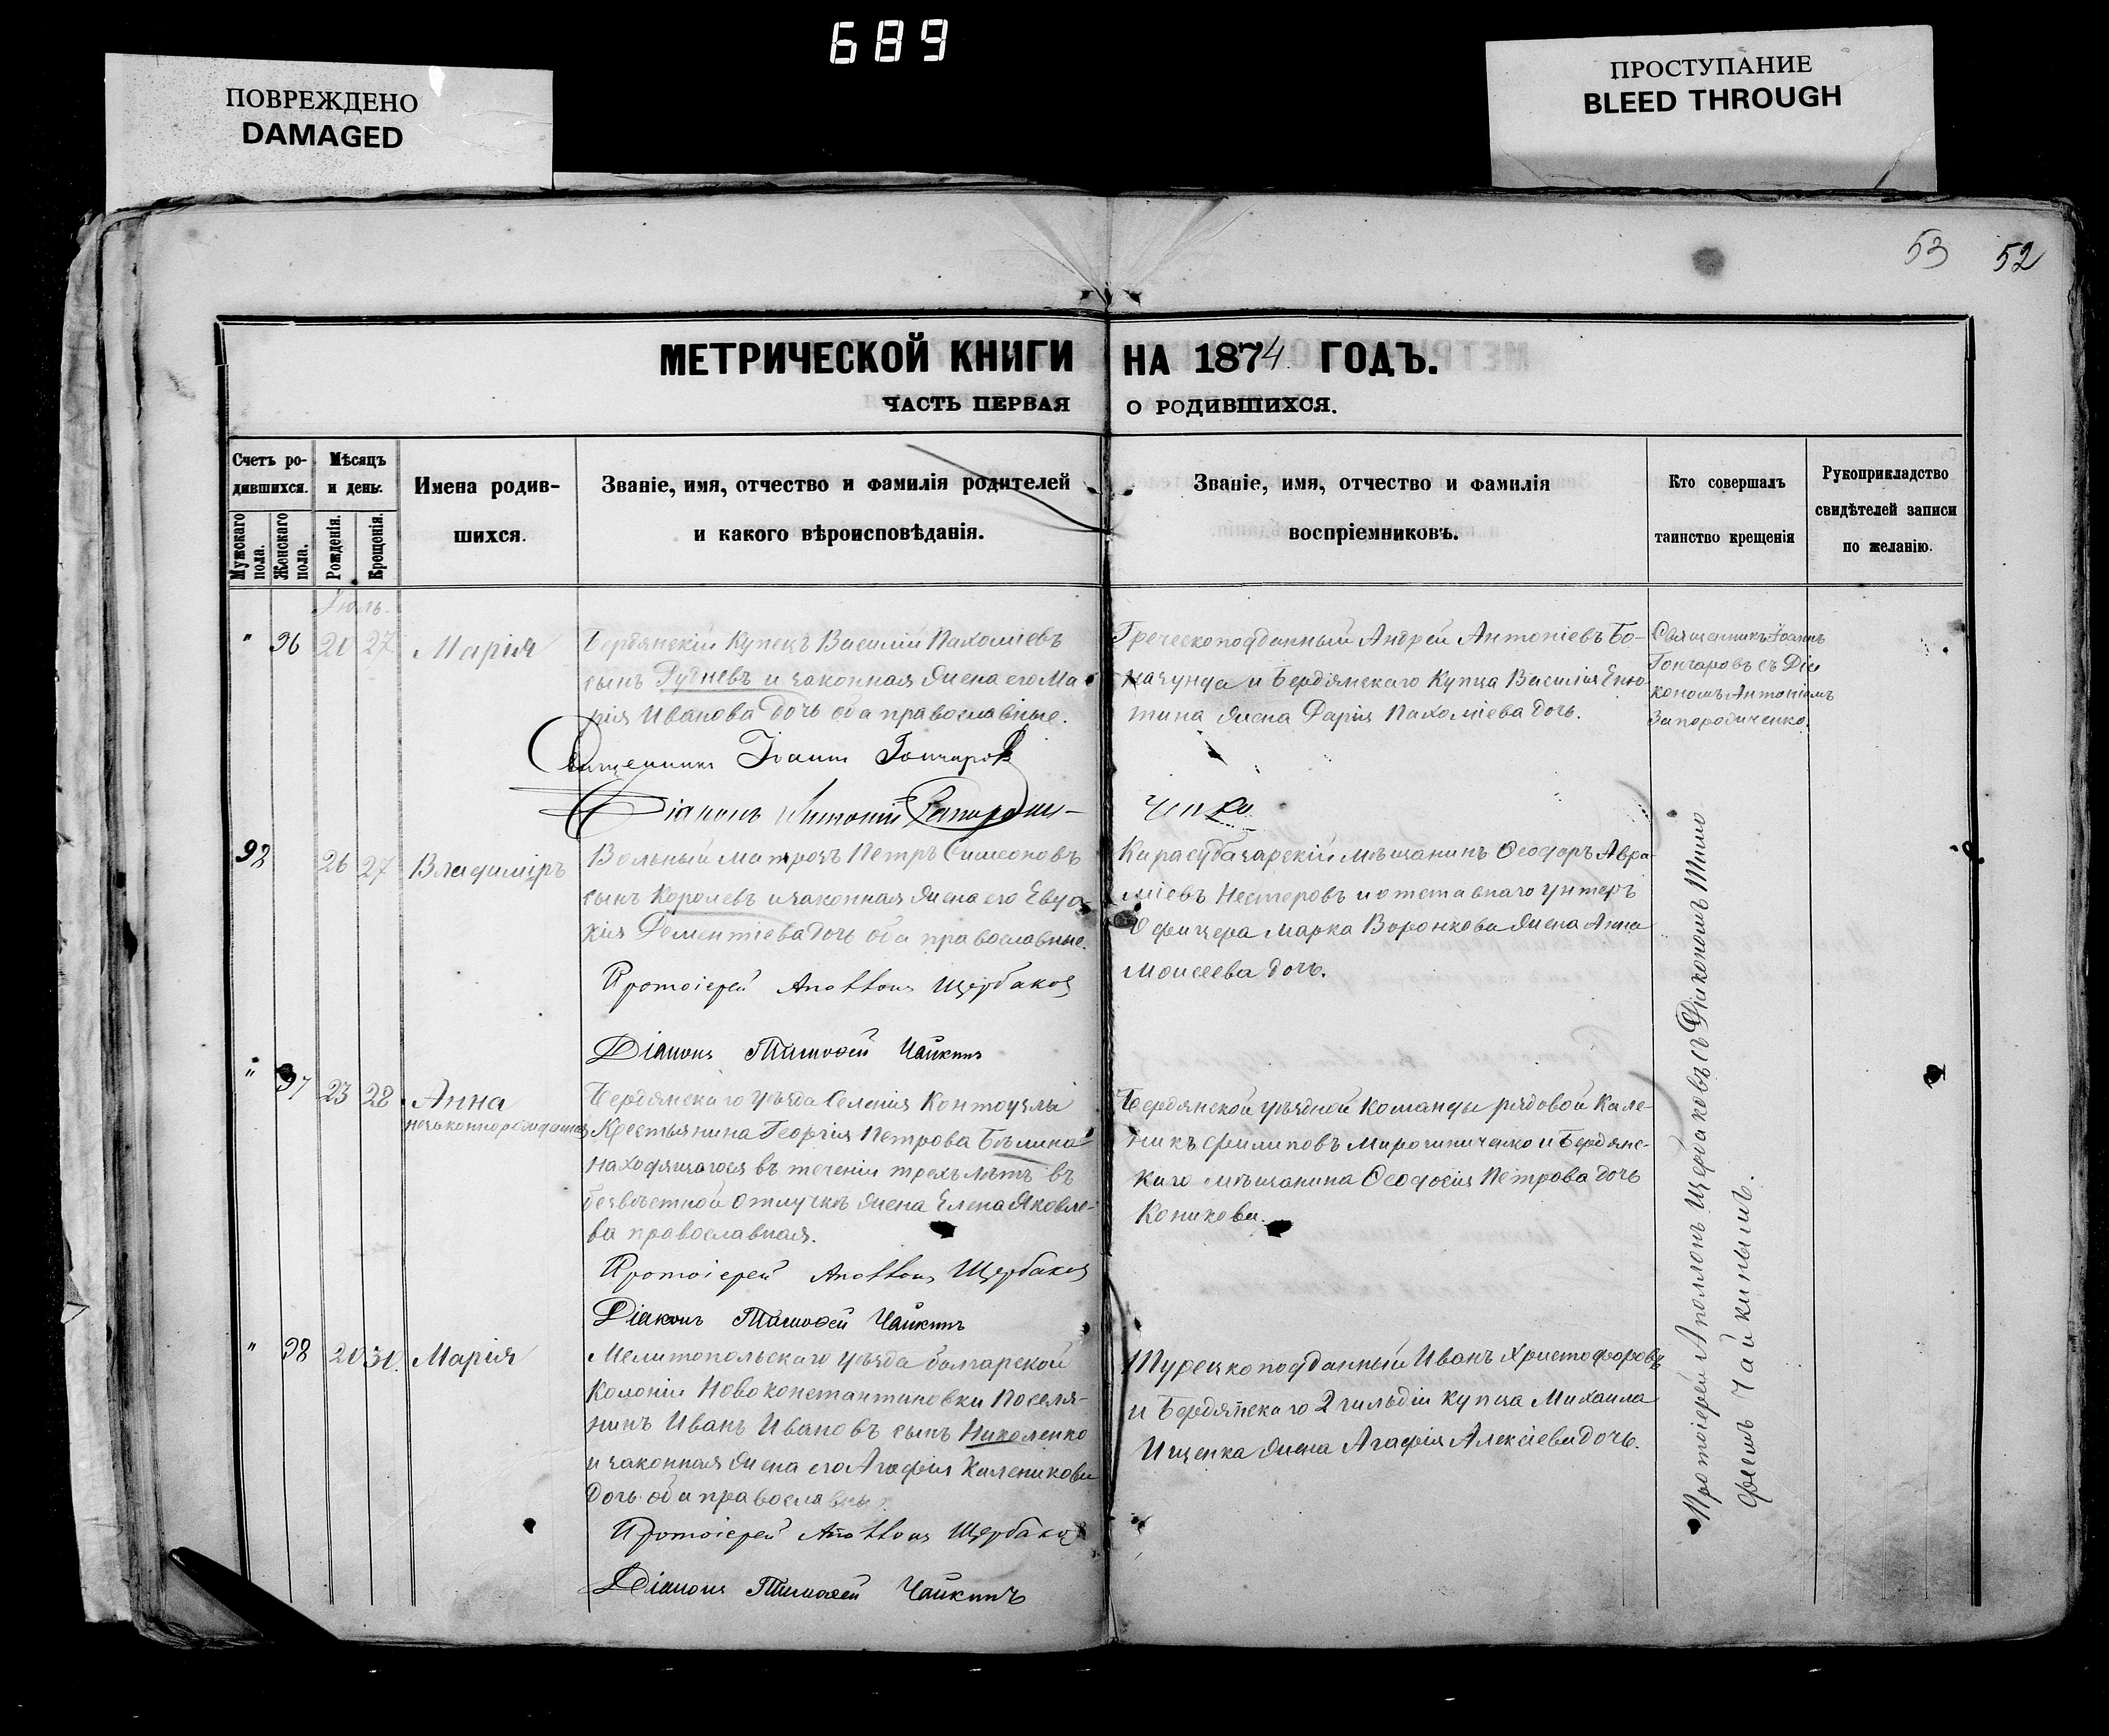 689
ПОВРЕЖДЕНО
DAMAGED
ПРОСТУПАНИЕ
BLEED THROUGH
53 52
МЕТРИЧЕСКОЙ КНИГИ НА 1874 ГОДЪ.
ЧАСТЬ ПЕРВАЯ О РОДИВШИХСЯ.
Счетъ ро-
дившихся.
Мужскаго пола.
Женскаго пола.
Мѣсяцъ
и день.
Рожденія.
Крещенія.
Имена родив-
шихся.
Званіе, имя, отчество и фамилія родителей
и какого вѣроисповѣданія.
Званіе, имя, отчество и фамилія
воспріемниковъ.
Кто совершалъ
таинство крещенія
Рукоприкладство
свидѣтелей записи
по желанію.
Іюль.
" 96 20 27 Марія
Бердянскій Купецъ Василій Пахоміевъ
сынъ Рудневъ и законная жена его Ма-
рія Иванова дочь оба православные.
Греческоподданный Андрей Антоніевъ Бо-
и Бердянскаго Купца Василія
тина жена Дарія Пахоміева дочь.
Священникъ Іоаннъ
Гончаровъ съ Діа
кономъ Антоніемъ
Запорожченко.
Священникъ Іоаннъ Гончаровъ
Діаконъ Антоній Запорож-
ченко
92 26 27 Владиміръ
Вольный матросъ Петръ Симеоновъ
сынъ Королевъ и законная жена его Евдо-
кія Дементіева дочь оба православные.
Карасубазарскій мѣщанинъ Ѳеодоръ Авра-
міевъ Нестеровъ и отставнаго унтеръ
Офицера Марка Воронкова жена Анна
Моисеева дочь.
Протоіерей Аполлонъ Щербаковъ
Діаконъ Тимоѳей Чайкинъ
" 97 23 28 Анна
незаконнорожденная
Бердянскаго уѣзда Селенія Контоузлы
Крестьянина Георгія Петрова Бѣлина
находящагося въ теченіи трехъ лѣтъ въ
безвѣстной отлучкѣ жена Елена Яковле-
ва православная.
Бердянской уѣздной Команды рядовой Кале-
никъ Филиповъ Мирошниченко и Бердянс-
каго мѣщанина Ѳеодосія Петрова дочь
Коникова.
Протоіерей Аполлонъ Щербаковъ
Діаконъ Тимоѳей Чайкинъ
" 98 20 31. Марія
Мелитопольскаго уѣзда болгарской
Колоніи Новоконстантиновки Поселя-
нинъ Иванъ Ивановъ сынъ Николенко
и законная жена его Агафія Каленикова
дочь оба православны
Турецкоподданный Иванъ Христофоровъ
и Бердянскаго 2 гильдіи купца Михаила
Ищенка жена Агафія Алексіева дочь.
Протоіерей Аполлонъ Щербаковъ
Діаконъ Тимоѳей Чайкинъ
Протоіерей Аполлонъ Щербаковъ съ Діакономъ Тимо
феемъ Чайкинымъ.